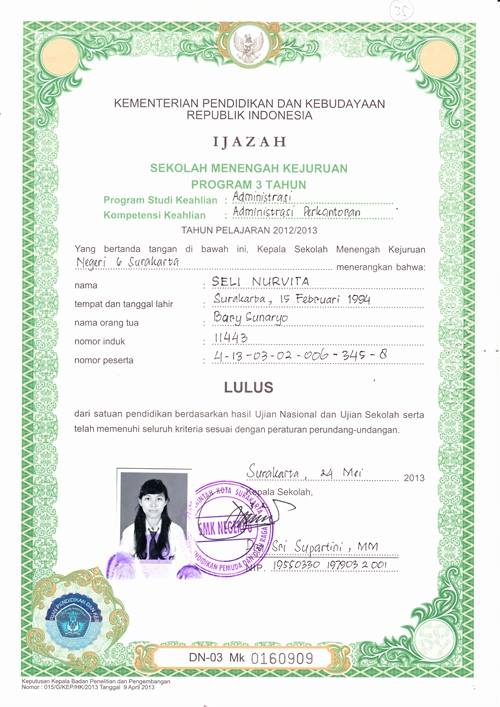 35
KEMENTERIAN PENDIDIKAN DAN KEBUDAYAAN
REPUBLIK INDONESIA
IJAZAH
SEKOLAH MENENGAH KEJURUAN
PROGRAM 3 TAHUN
Program Studi Keahlian : Administrasi
Kompetensi Keahlian : Administrasi Perkantoran
TAHUN PELAJARAN 2012/2013
Yang bertanda tangan di bawah ini, Kepala Sekolah Menengah Kejuruan
Negeri 6 Surakarta menerangkan bahwa:
nama : SELI NURVITA
tempat dan tanggal lahir : Surakarta, 15 Februari 1994
nama orang tua : Bary Sunaryo
nomor induk : 11443
nomor peserta : 4-13-03-02-006-345-8
LULUS
dari satuan pendidikan berdasarkan hasil Ujian Nasional dan Ujian Sekolah serta
telah memenuhi seluruh kriteria sesuai dengan peraturan perundang-undangan.
Surakarta, 24 Mei 2013
Kepala Sekolah,
SMK NEGERI 6
Sri Supartini, MM
NIP. 19550330 197903 2 001
DN-03 Mk 0160909
Keputusan Kepala Badan Penelitian dan Pengembangan
Nomor : 015/G/KEP/HK/2013 Tanggal 9 April 2013